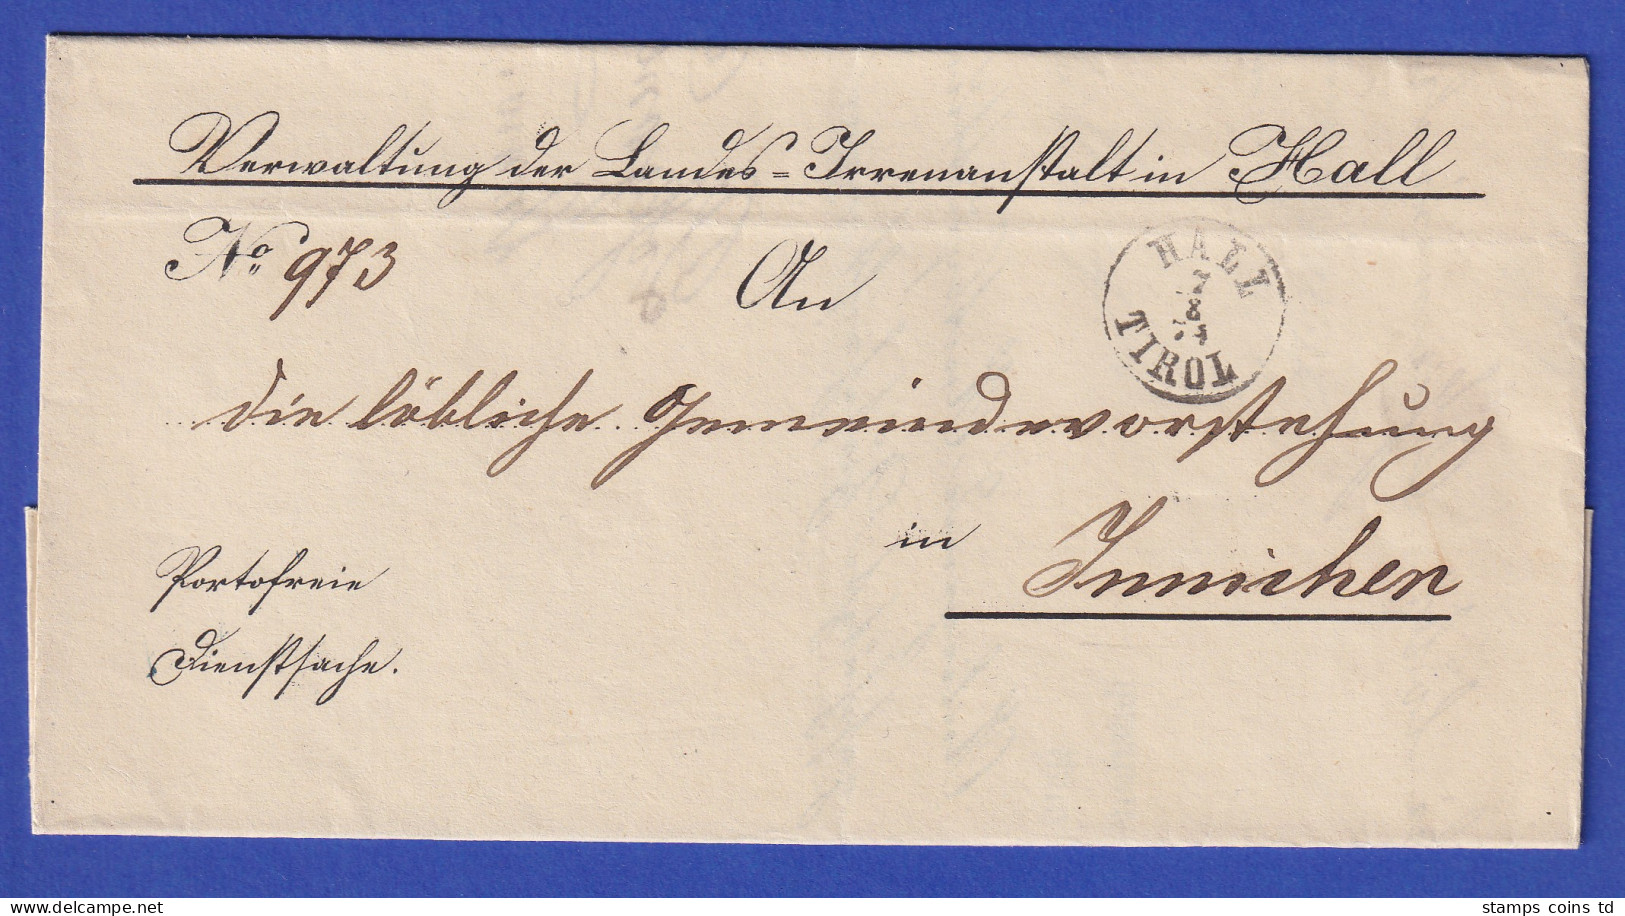 Verwaltung der Landes=Irrenanstalt in Hall
No. 973
An
HALL
7
8
74
TIROL
die löbliche Gemeindevorstehung
in
Innichen
Portofreie
Dienstsache.
stamps coins td